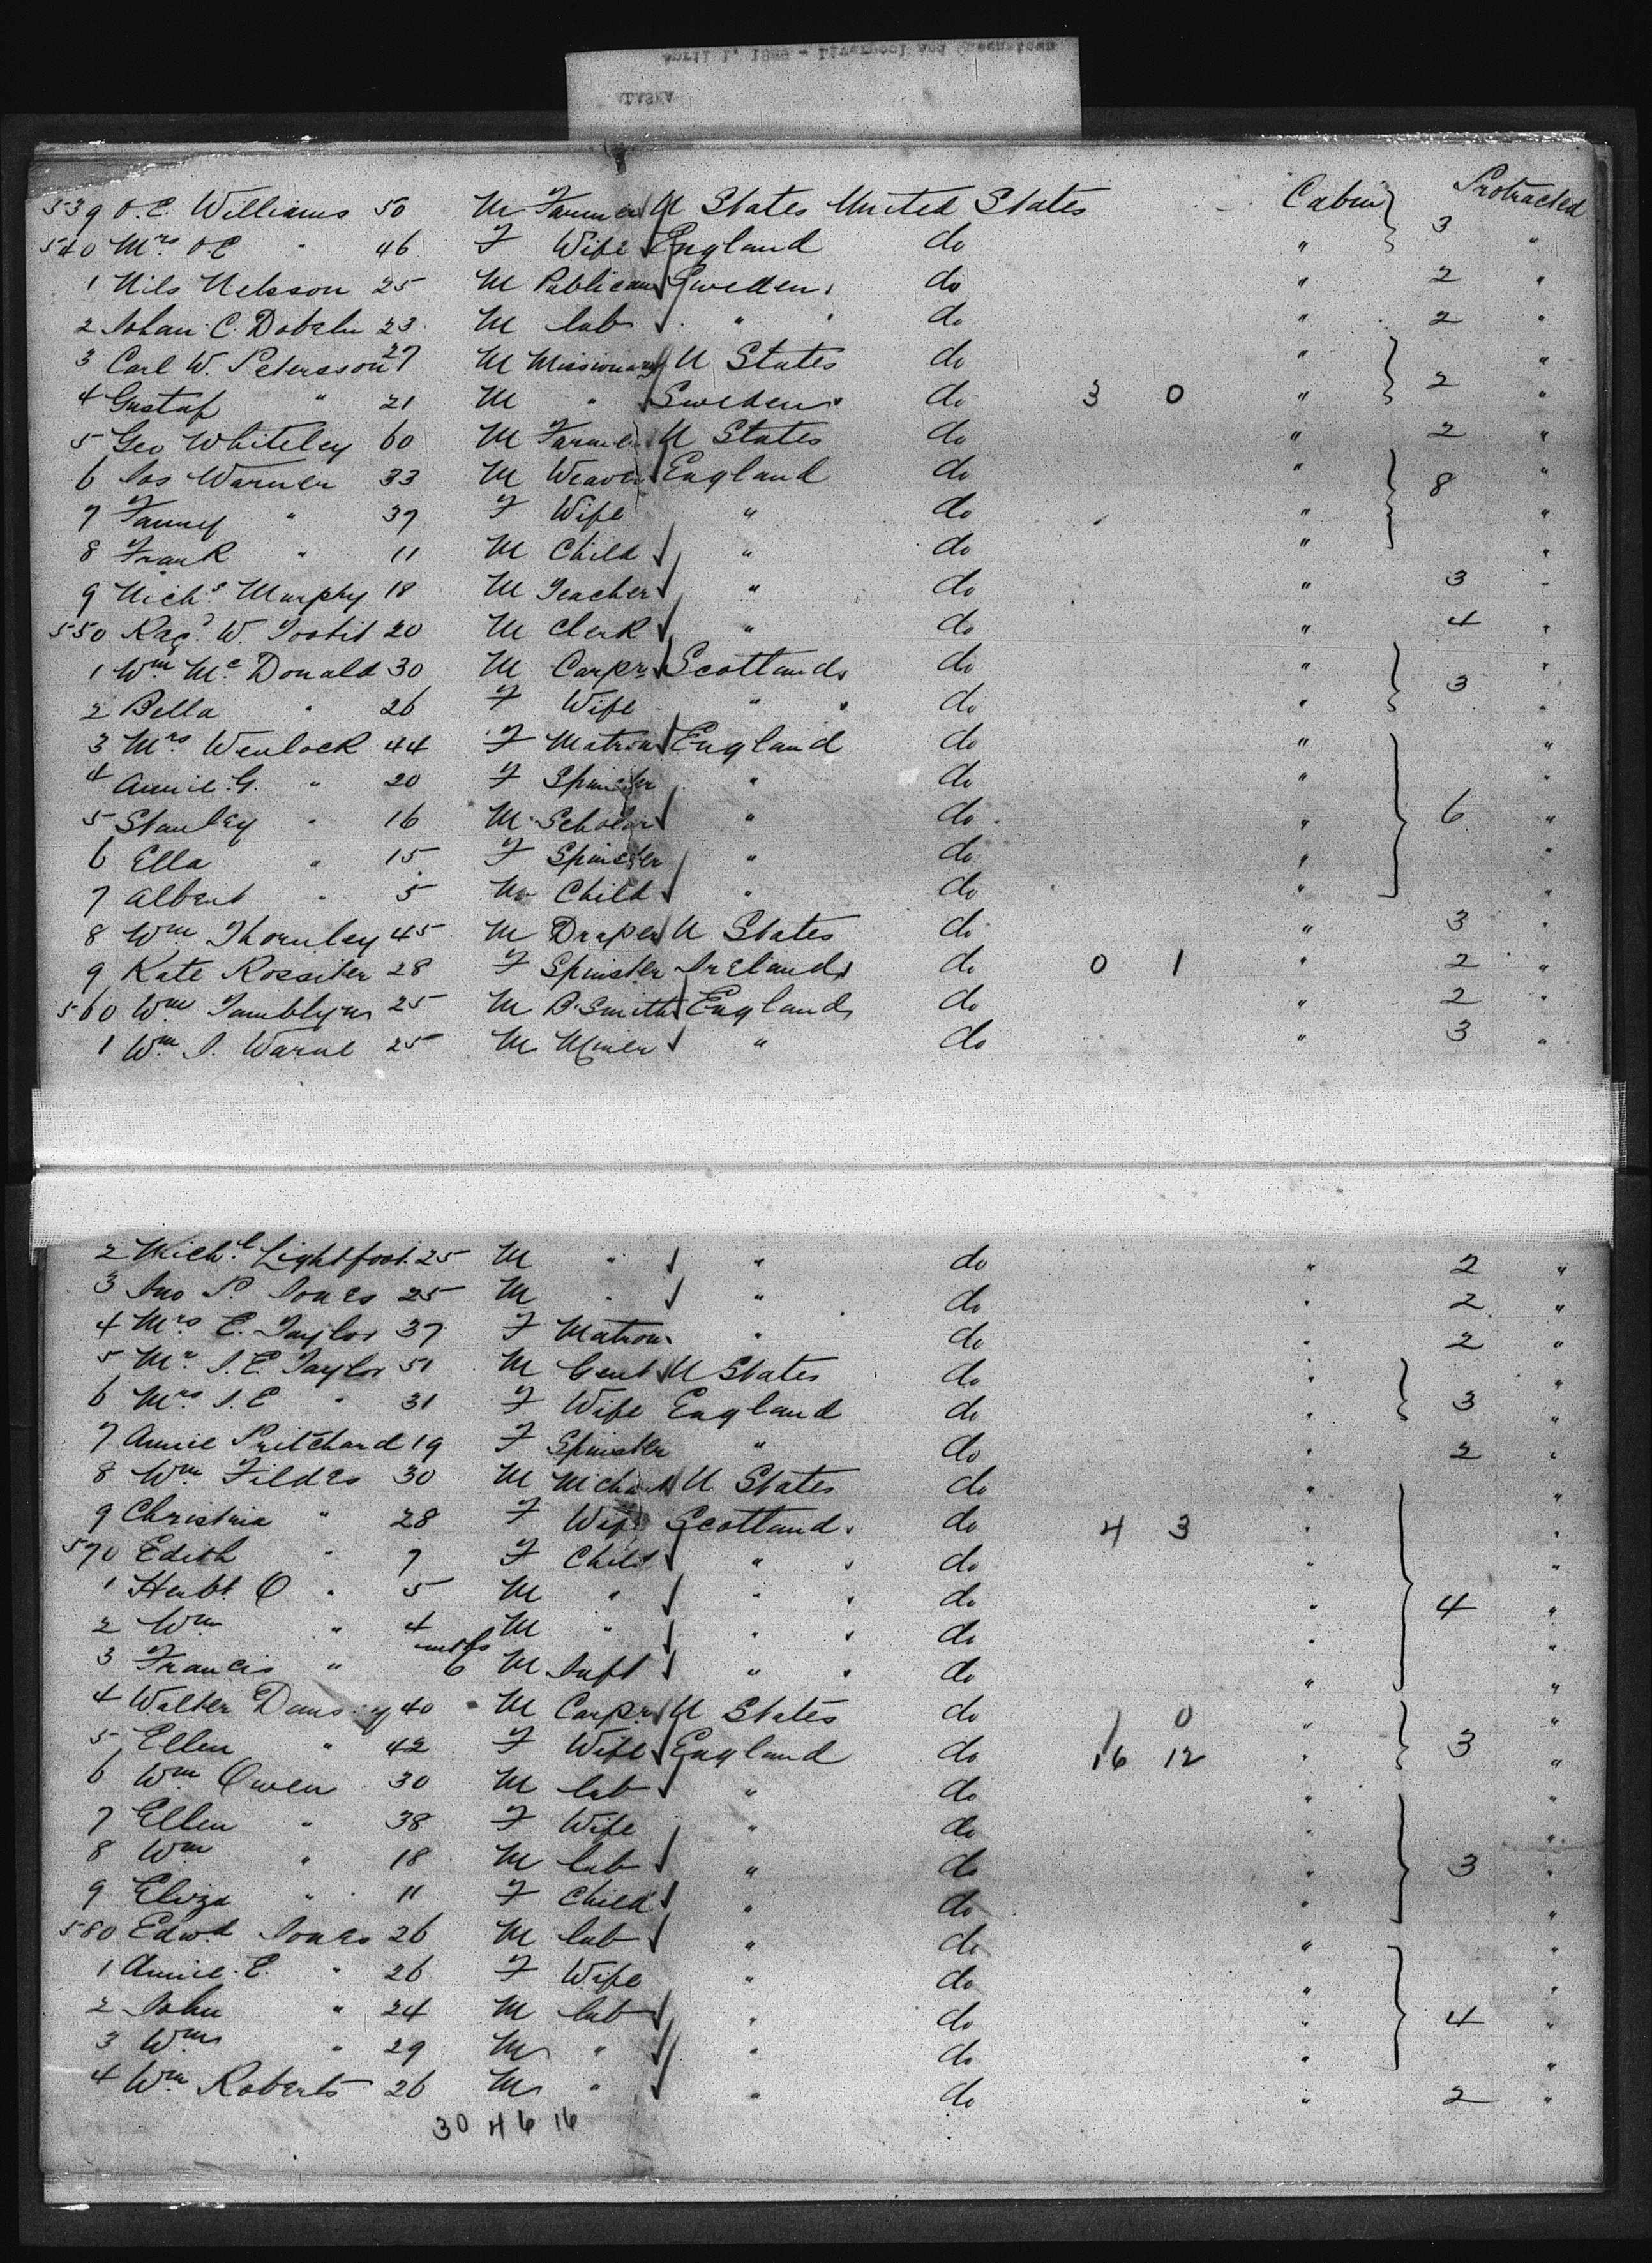 April 1, 1889 - Liverpool and Queenstown
ALASKA
Protracted
539 O. E. Williams 50 M Farmer U States United States Cabin 3
540 Mrs O E " 46 F Wife England do " "
1 Nils Nelsson 25 M Publican Sweden do " 2 "
2 Johan C. 23 M lab " do " 2 "
3 Carl W. Petersson 27 M Missionary U States do " "
4 Gustaf " 21 M " Sweden do 3 0 " 2 "
5 Geo Whiteley 60 M Farmer U States do " 2 "
6 Jos Warner 33 M Weaver England do " 8 "
7 Fanny " 37 F Wife " do " "
8 Frank " 11 M Child " do " "
9 Nichs Murphy 18 M Teacher " do " 3 "
550 W. 20 M Clerk " do " 4 "
1 Wm McDonald 30 M Carpr Scotland do " "
2 Bella " 26 F Wife " do " 3 "
3 Mrs Wenlock 44 F Matron England do " "
4 Annie G. " 20 F Spinster " do " "
5 Stanley " 16 M Scholar " do " 6 "
6 Ella " 15 F Spinster " do " "
7 Albert " 5 M Child " do " "
8 Wm Thornley 45 M Draper U States do " 3 "
9 Kate Rossiter 28 F Spinster Ireland do 0 1 " 2 "
560 Wm Tamblyn 25 M B.Smith England do " 2 "
1 Wm J. Warne 25 M Miner " do " 3 "
2 Michl Lightfoot 25 M " " do " 2 "
3 Jno P. Jones 25 M " " do " 2 "
4 Mrs E. Taylor 37 F Matron " do " 2 "
5 Mr J. E. Taylor 51 M Gent U States do " "
6 Mrs J. E " 31 F Wife England do " 3 "
7 Annie Pritchard 19 F Spinster " do " 2 "
8 Wm Fildes 30 M U States do " "
9 Christina " 28 F Wife Scotland do 4 3 " "
570 Edith " 7 F Child " do " "
1 Herbt O " 5 M " " do " 4 "
2 Wm " 4 M " " do " "
3 Francis " mths 6 M Inft " do " "
4 Walter 40 M Carpr U States do 1 0 " "
5 Ellen " 42 F Wife England do 16 12 " 3 "
6 Wm Owen 30 M lab " do " "
7 Ellen " 38 F Wife " do " "
8 Wm " 18 M lab " do " 3 "
9 Eliza " 11 F Child " do " "
580 Edwd Jones 26 M lab " do " "
1 Annie E. " 26 F Wife " do " "
2 John " 24 M lab " do " 4 "
3 Wm " 29 M " " do " "
4 Wm Roberts 26 M " " do " 2 "
30 4 6 16